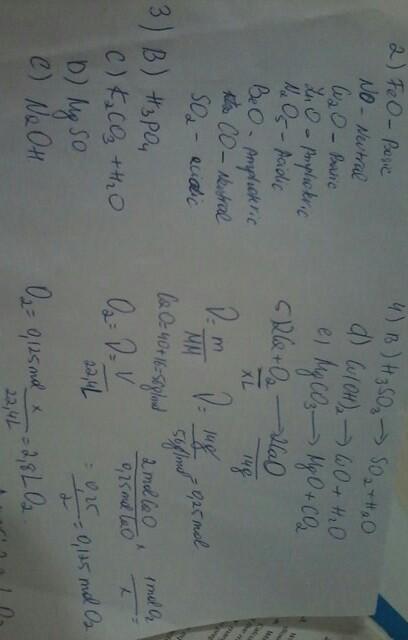 2) FeO - Basic
NO - Neutral
Cu2O - Basic
ZnO - Amphoteric
N2O5 - Acidic
BeO - Amphoteric
CO - Neutral
SO2 - acidic
3) B) H3PO4
C) K2CO3 + H2O
D) MgSO
e) NaOH
4) B) H2SO3 → SO2 + H2O
d) Cu(OH)2 → CuO + H2O
e) MgCO3 → MgO + CO2
5) 2Ca + O2 → CaO
XL 14g
V = m/MM V = 14g/56g/mol = 0,25 mol
CaO = 40 + 16 = 56g/mol
2 mol CaO / 0,25 mol CaO × 1 mol O2 / x =
O2 = V = V/22,4L = 0,25/2 = 0,125 mol O2
O2 = 0,125 mol x/22,4L = 2,8 L O2